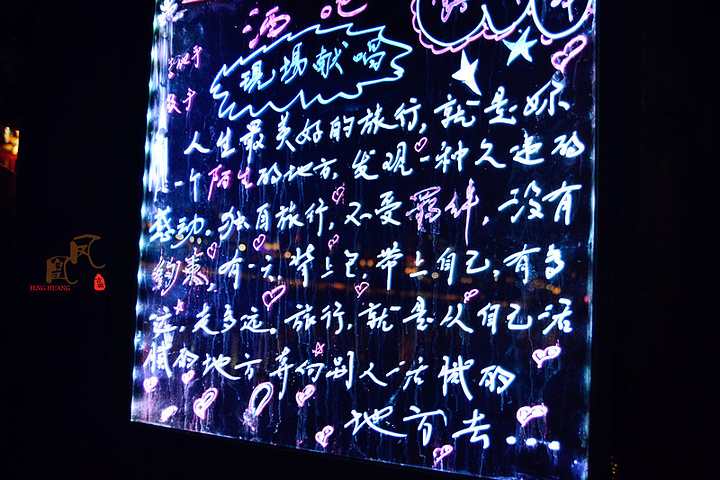 酒吧
現場献唱
歌手
人生最美好的旅行,就是妳
一个陌生的地方,发现一种久违的
感动。独自旅行,不受羁绊,没有
約束,有一天,背上包,带上自己,有多
远,走多远。旅行,就是从自己活
腻的地方奔向别人活腻的
地方去....
凤凰
FENG HUANG